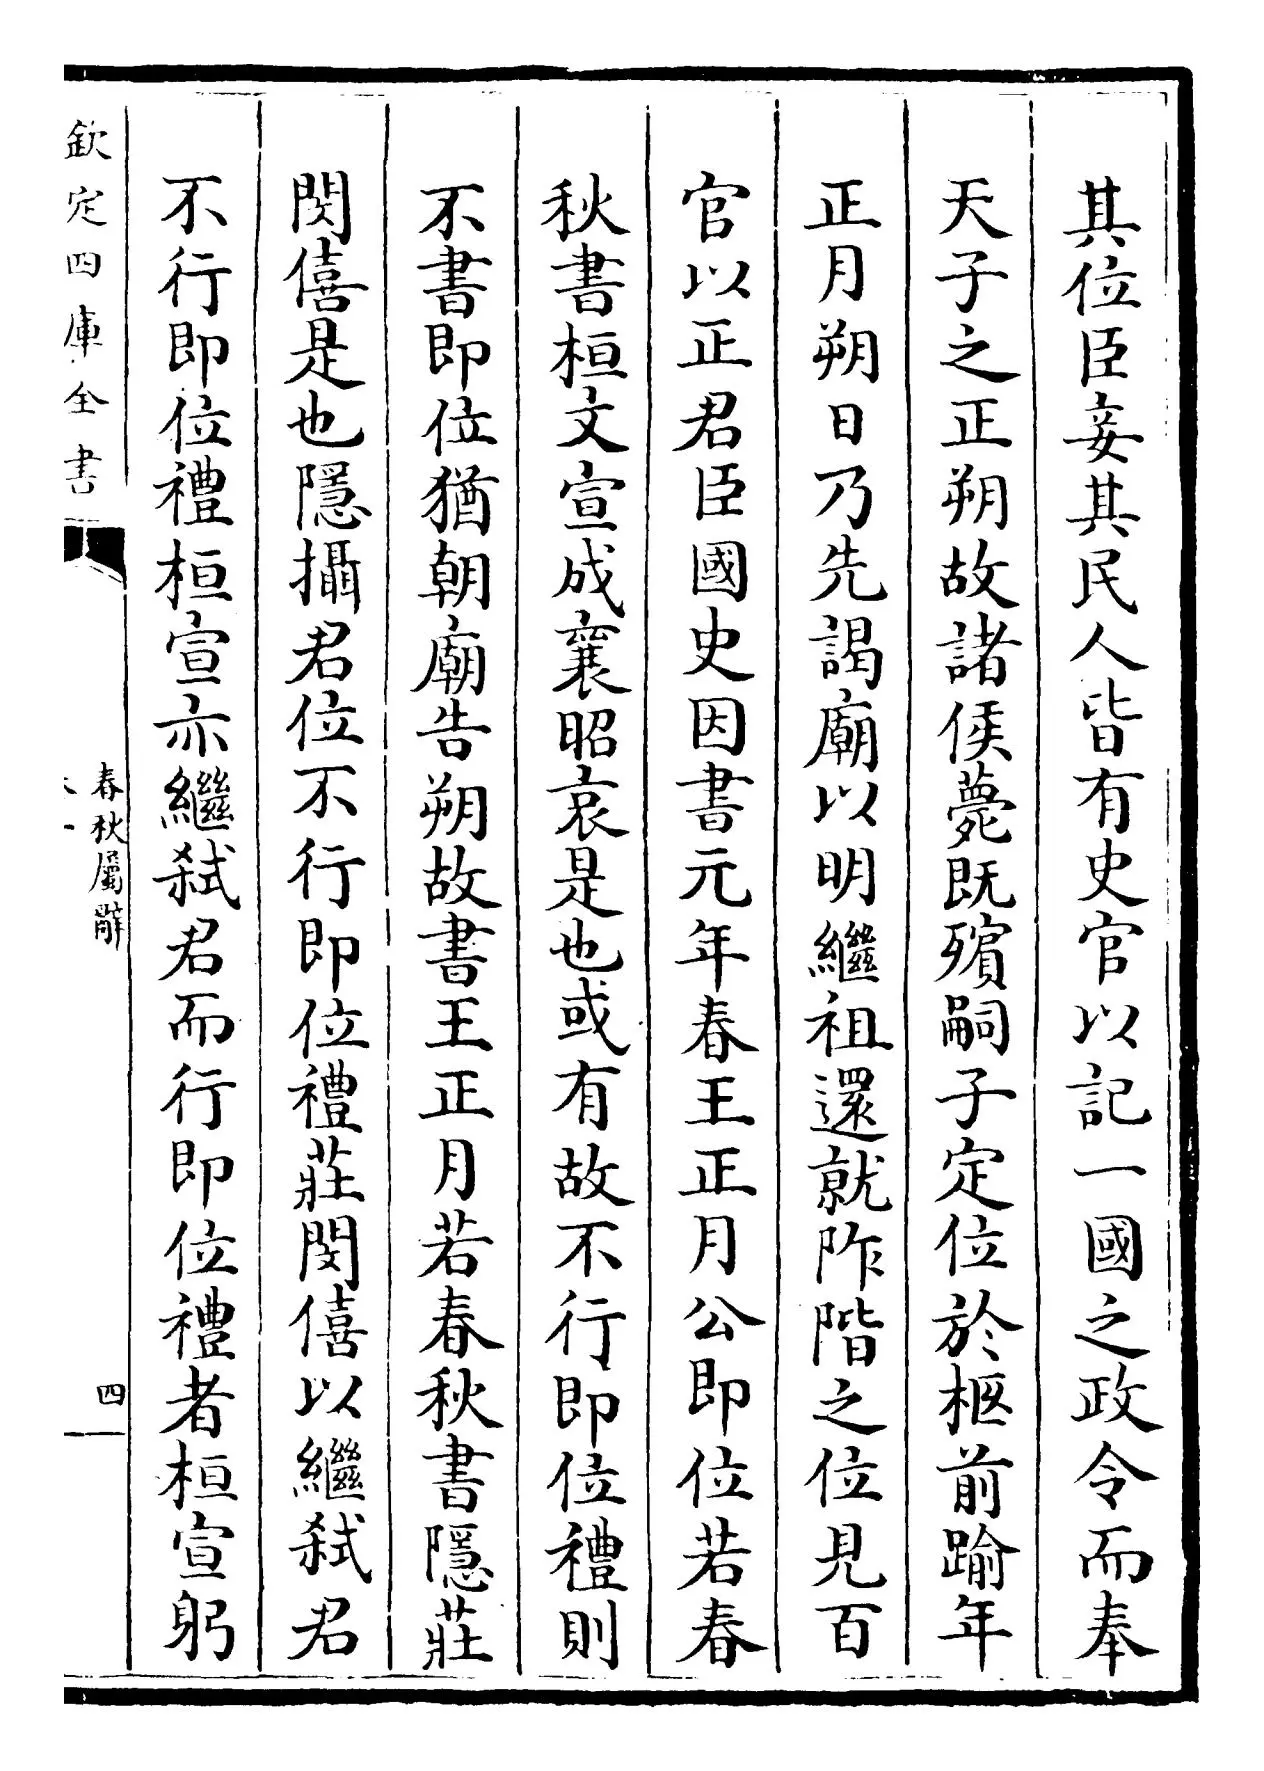 其位臣妾其民人皆有史官以記一國之政令而奉
天子之正朔故諸侯薨既殯嗣子定位於柩前踰年
正月朔日乃先謁廟以明繼祖還就阼階之位見百
官以正君臣國史因書元年春王正月公即位若春
秋書桓文宣成襄昭哀是也或有故不行即位禮則
不書即位猶朝廟告朔故書王正月若春秋書隱莊
閔僖是也隱攝君位不行即位禮莊閔僖以繼弑君
不行即位禮桓宣亦繼弑君而行即位禮者桓宣躬
欽定四庫全書
春秋屬辭
四